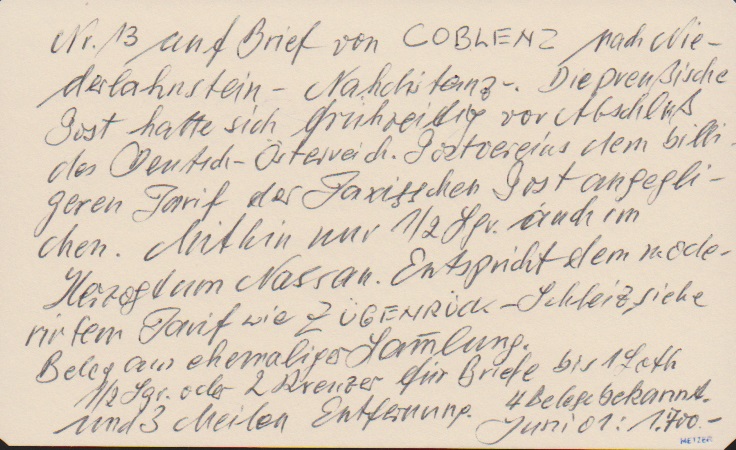 Nr. 13 auf Brief von COBLENZ nach Nie-
derlahnstein - Nahdistanz-. Die preußische
Post hatte sich frühzeitig vor Abschluß
des Deutsch-Österreich. Postvereins dem billi-
geren Tarif der Taxisschen Post angegli-
chen. Mithin nur 1/2 Sgr. auch im
Herzogtum Nassau. Entspricht dem mode-
rirtem Tarif wie ZÜGENRÜCK-Schleiz, siehe
Beleg aus ehemaliger Sam̅lung.
1/2 Sgr. oder 2 Kreuzer für Briefe bis 1 Loth
und 3 Meilen Entfernung. 4 Belege bekannt.
Juni 01: 1.700.-
METZER